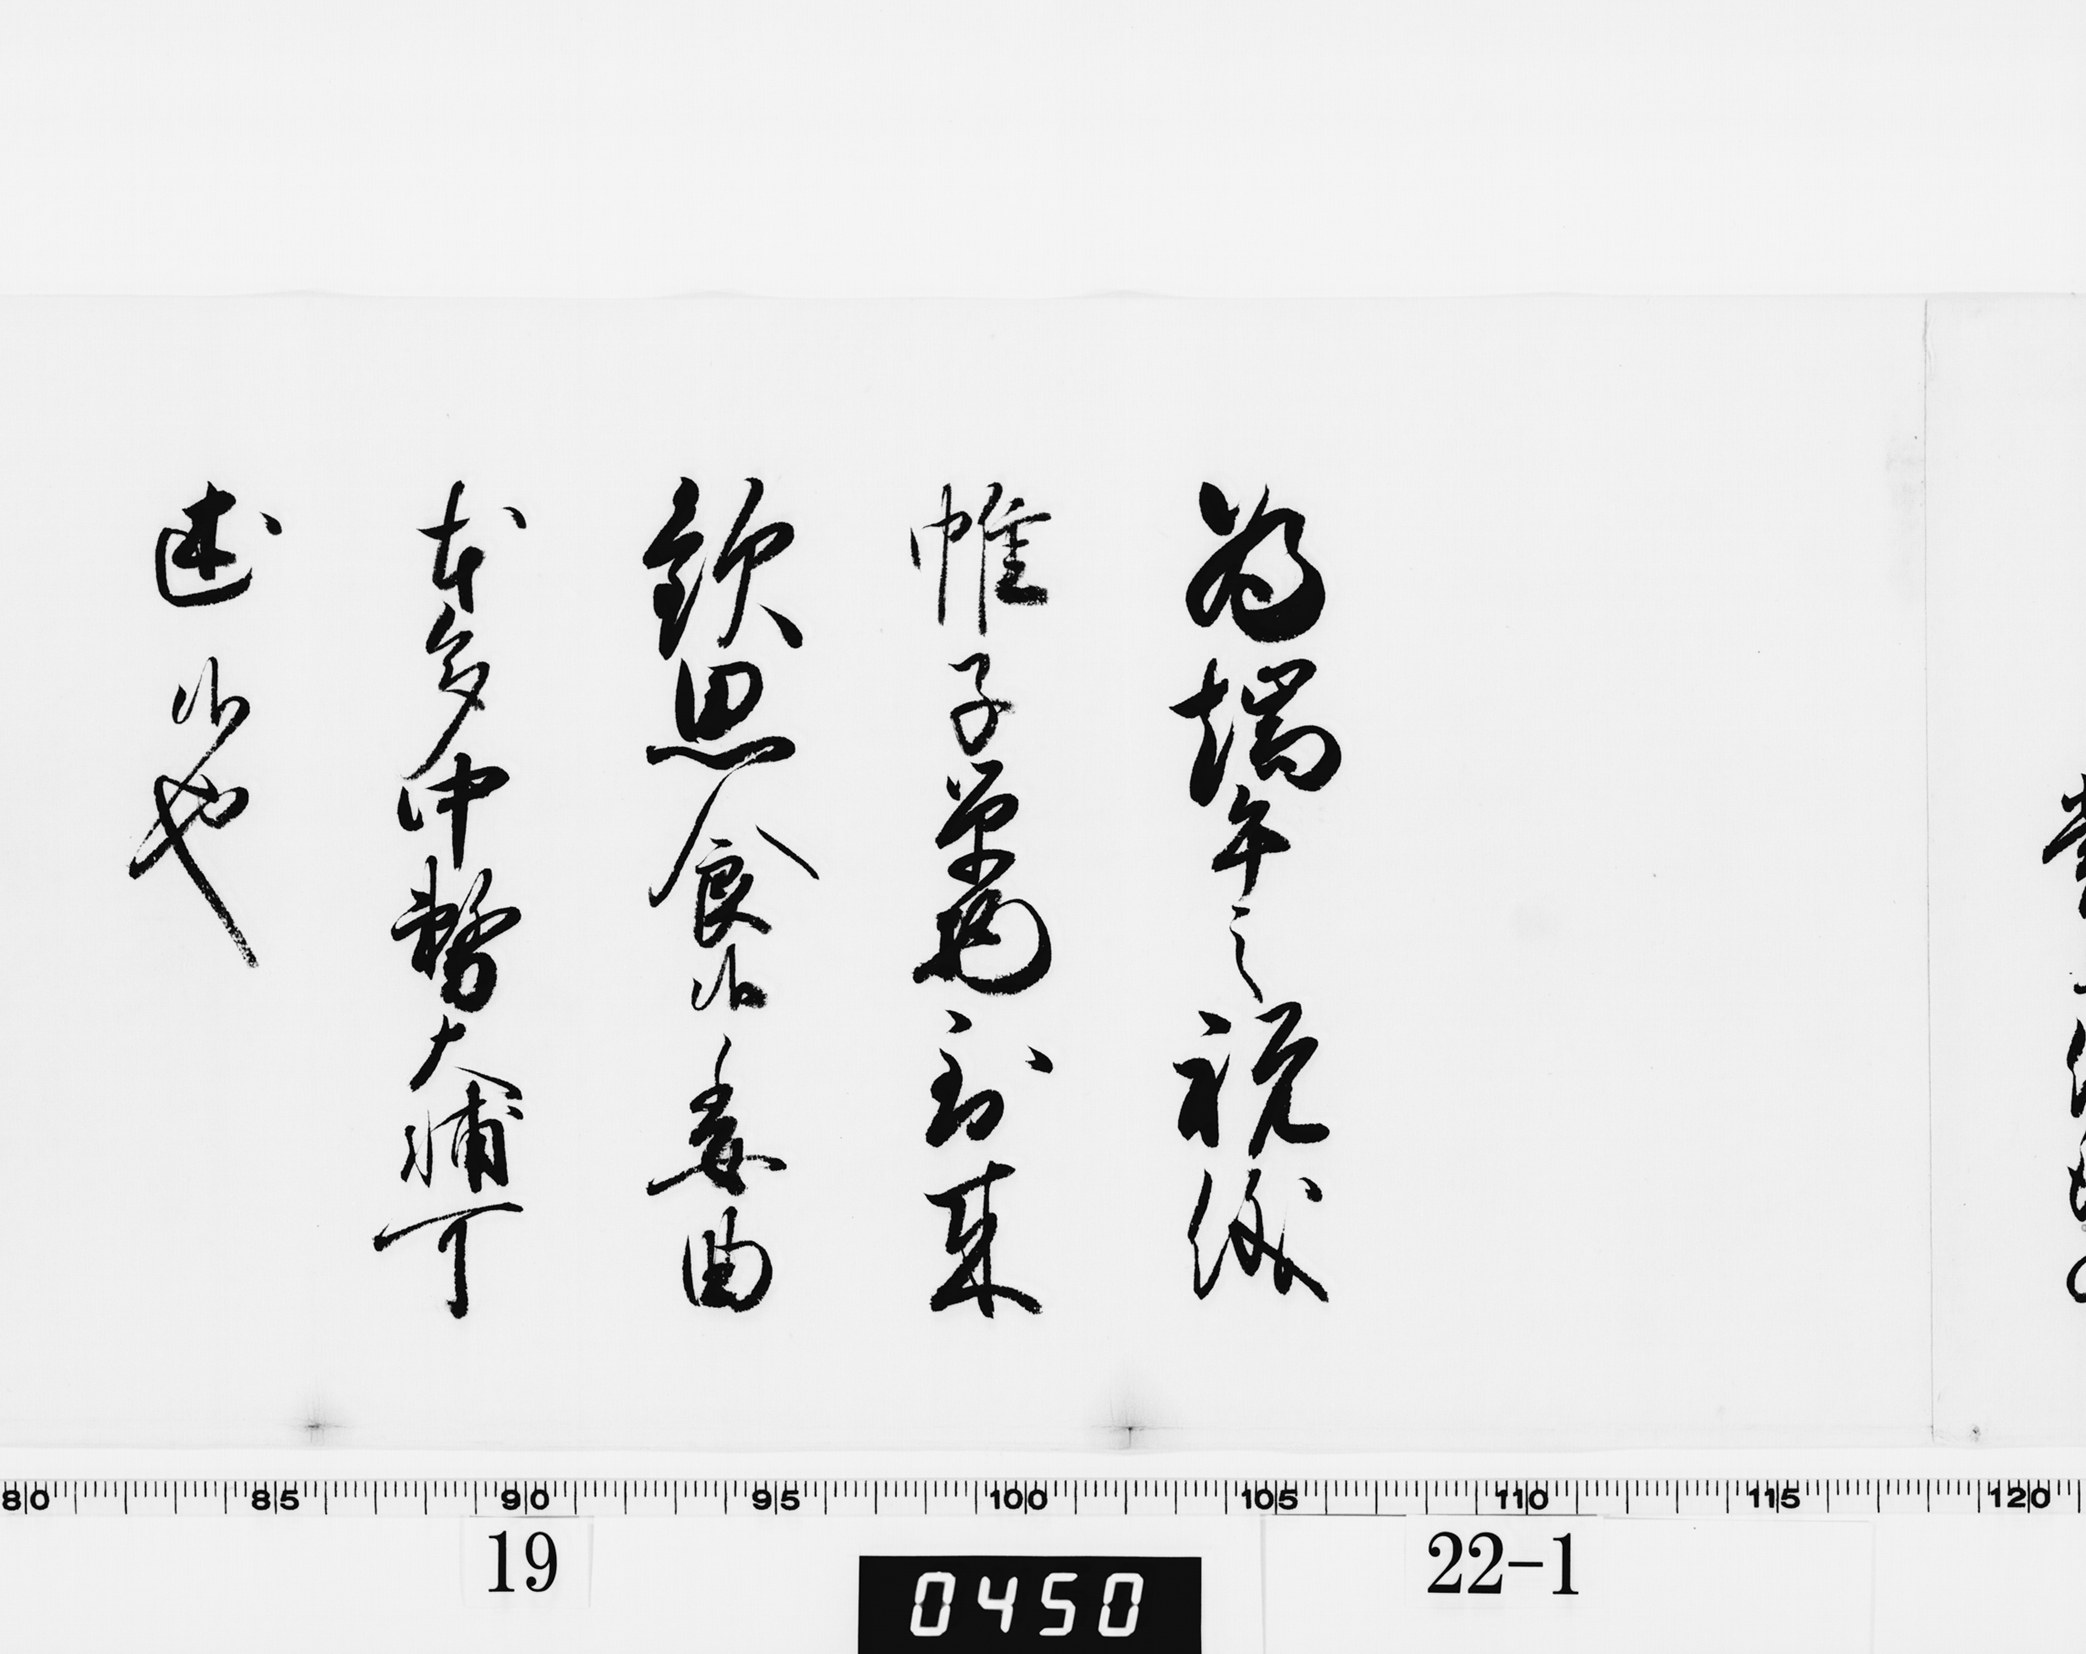 為端午之祝儀
帷子單物到来
歓思食候委曲
本多中務大輔可
述候也
80 85 90 95 100 105 110 115 120
19
22-1
0450